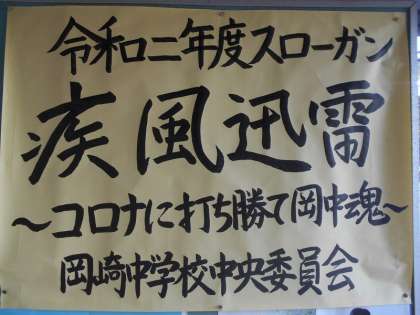 令和二年度スローガン
疾風迅雷
～コロナに打ち勝て岡中魂～
岡崎中学校中央委員会